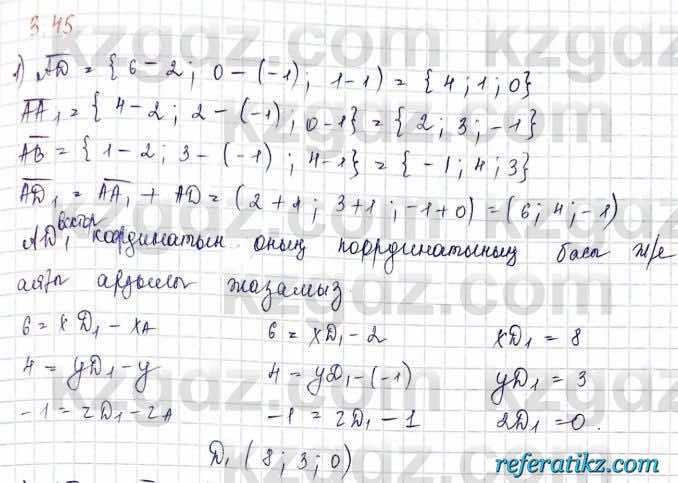 3.45
1) AD = { 6 - 2 ; 0 - (-1) ; 1-1) = { 4 ; 1 ; 0}
AA₁ = { 4 - 2 ; 2 - (-1) ; 0-1} = { 2 ; 3 ; -1}
AB = { 1 - 2 ; 3 - (-1) ; 4-1} = { -1 ; 4 ; 3}
AD₁ = AA₁ + AD = (2+4 ; 3+1 ; -1+0) = (6 ; 4 ; -1)
вектор
AD₁ координатын оның координатының басы ж/е
аяғы арқылы жазамыз
6 = xD₁ - xA 6 = xD₁ - 2 xD₁ = 8
4 = yD₁ - y 4 = yD₁ - (-1) yD₁ = 3
-1 = zD₁ - zA -1 = zD₁ - 1 zD₁ = 0.
D₁ ( 8 ; 3 ; 0)
referatikz.com
kzgdz.com